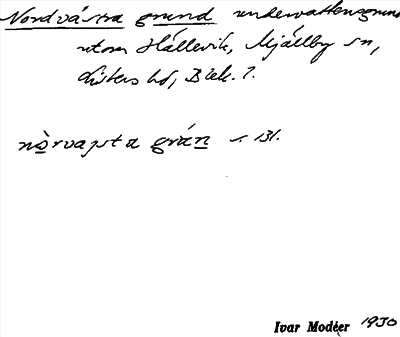 Nordvästra grund undervattensgrund
utom Hällevik, Mjällby sn,
Listers hd, Blek. ?.
nòrvapsta grán s. 131.
Ivar Modéer 1930